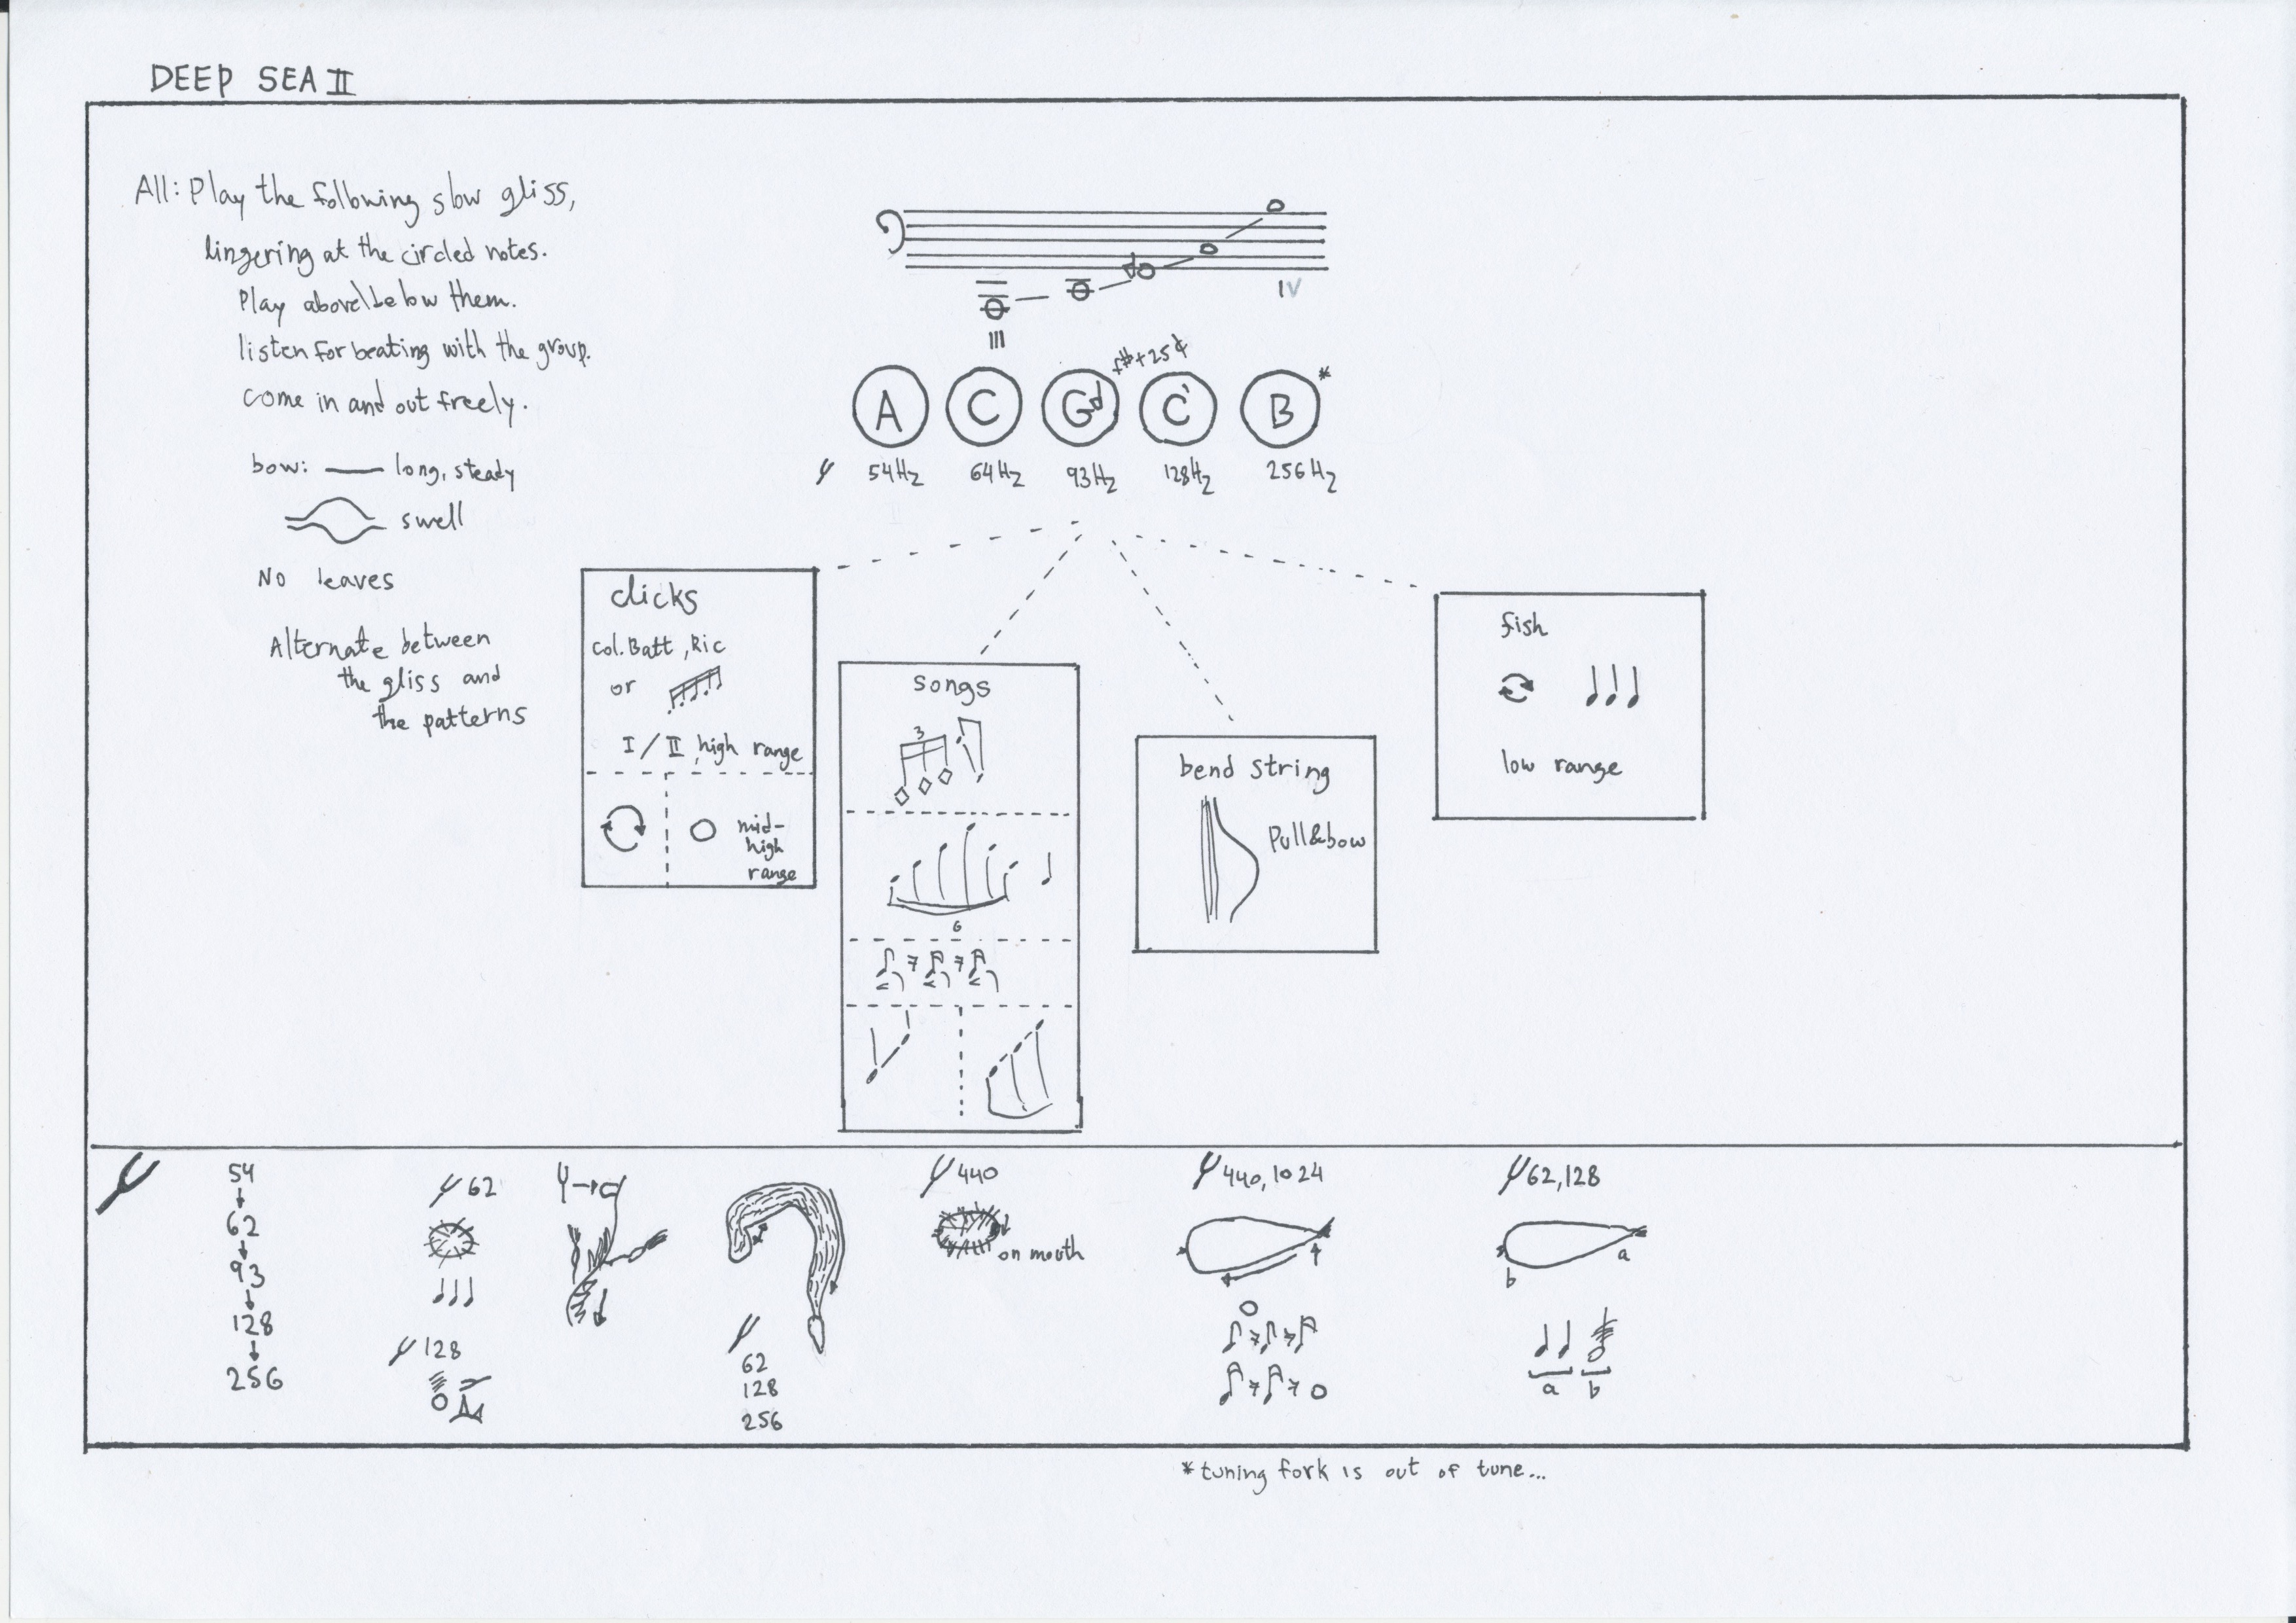 DEEP SEA II
All: Play the following slow gliss,
lingering at the circled notes.
Play above\below them.
listen for beating with the group.
come in and out freely.
bow: long, steady
swell
No leaves
Alternate between
the gliss and
the patterns
IV
III
f#+25¢
A C Gd C' B *
54Hz 64Hz 93Hz 128Hz 256Hz
clicks
Col. Batt, Ric
or
I / II, high range
mid-
high
range
songs
3
6
bend string
Pull&bow
fish
low range
54
62
93
128
256
62
128
62
128
256
440
on mouth
440, 1024
62, 128
b a
a b
*tuning fork is out of tune...